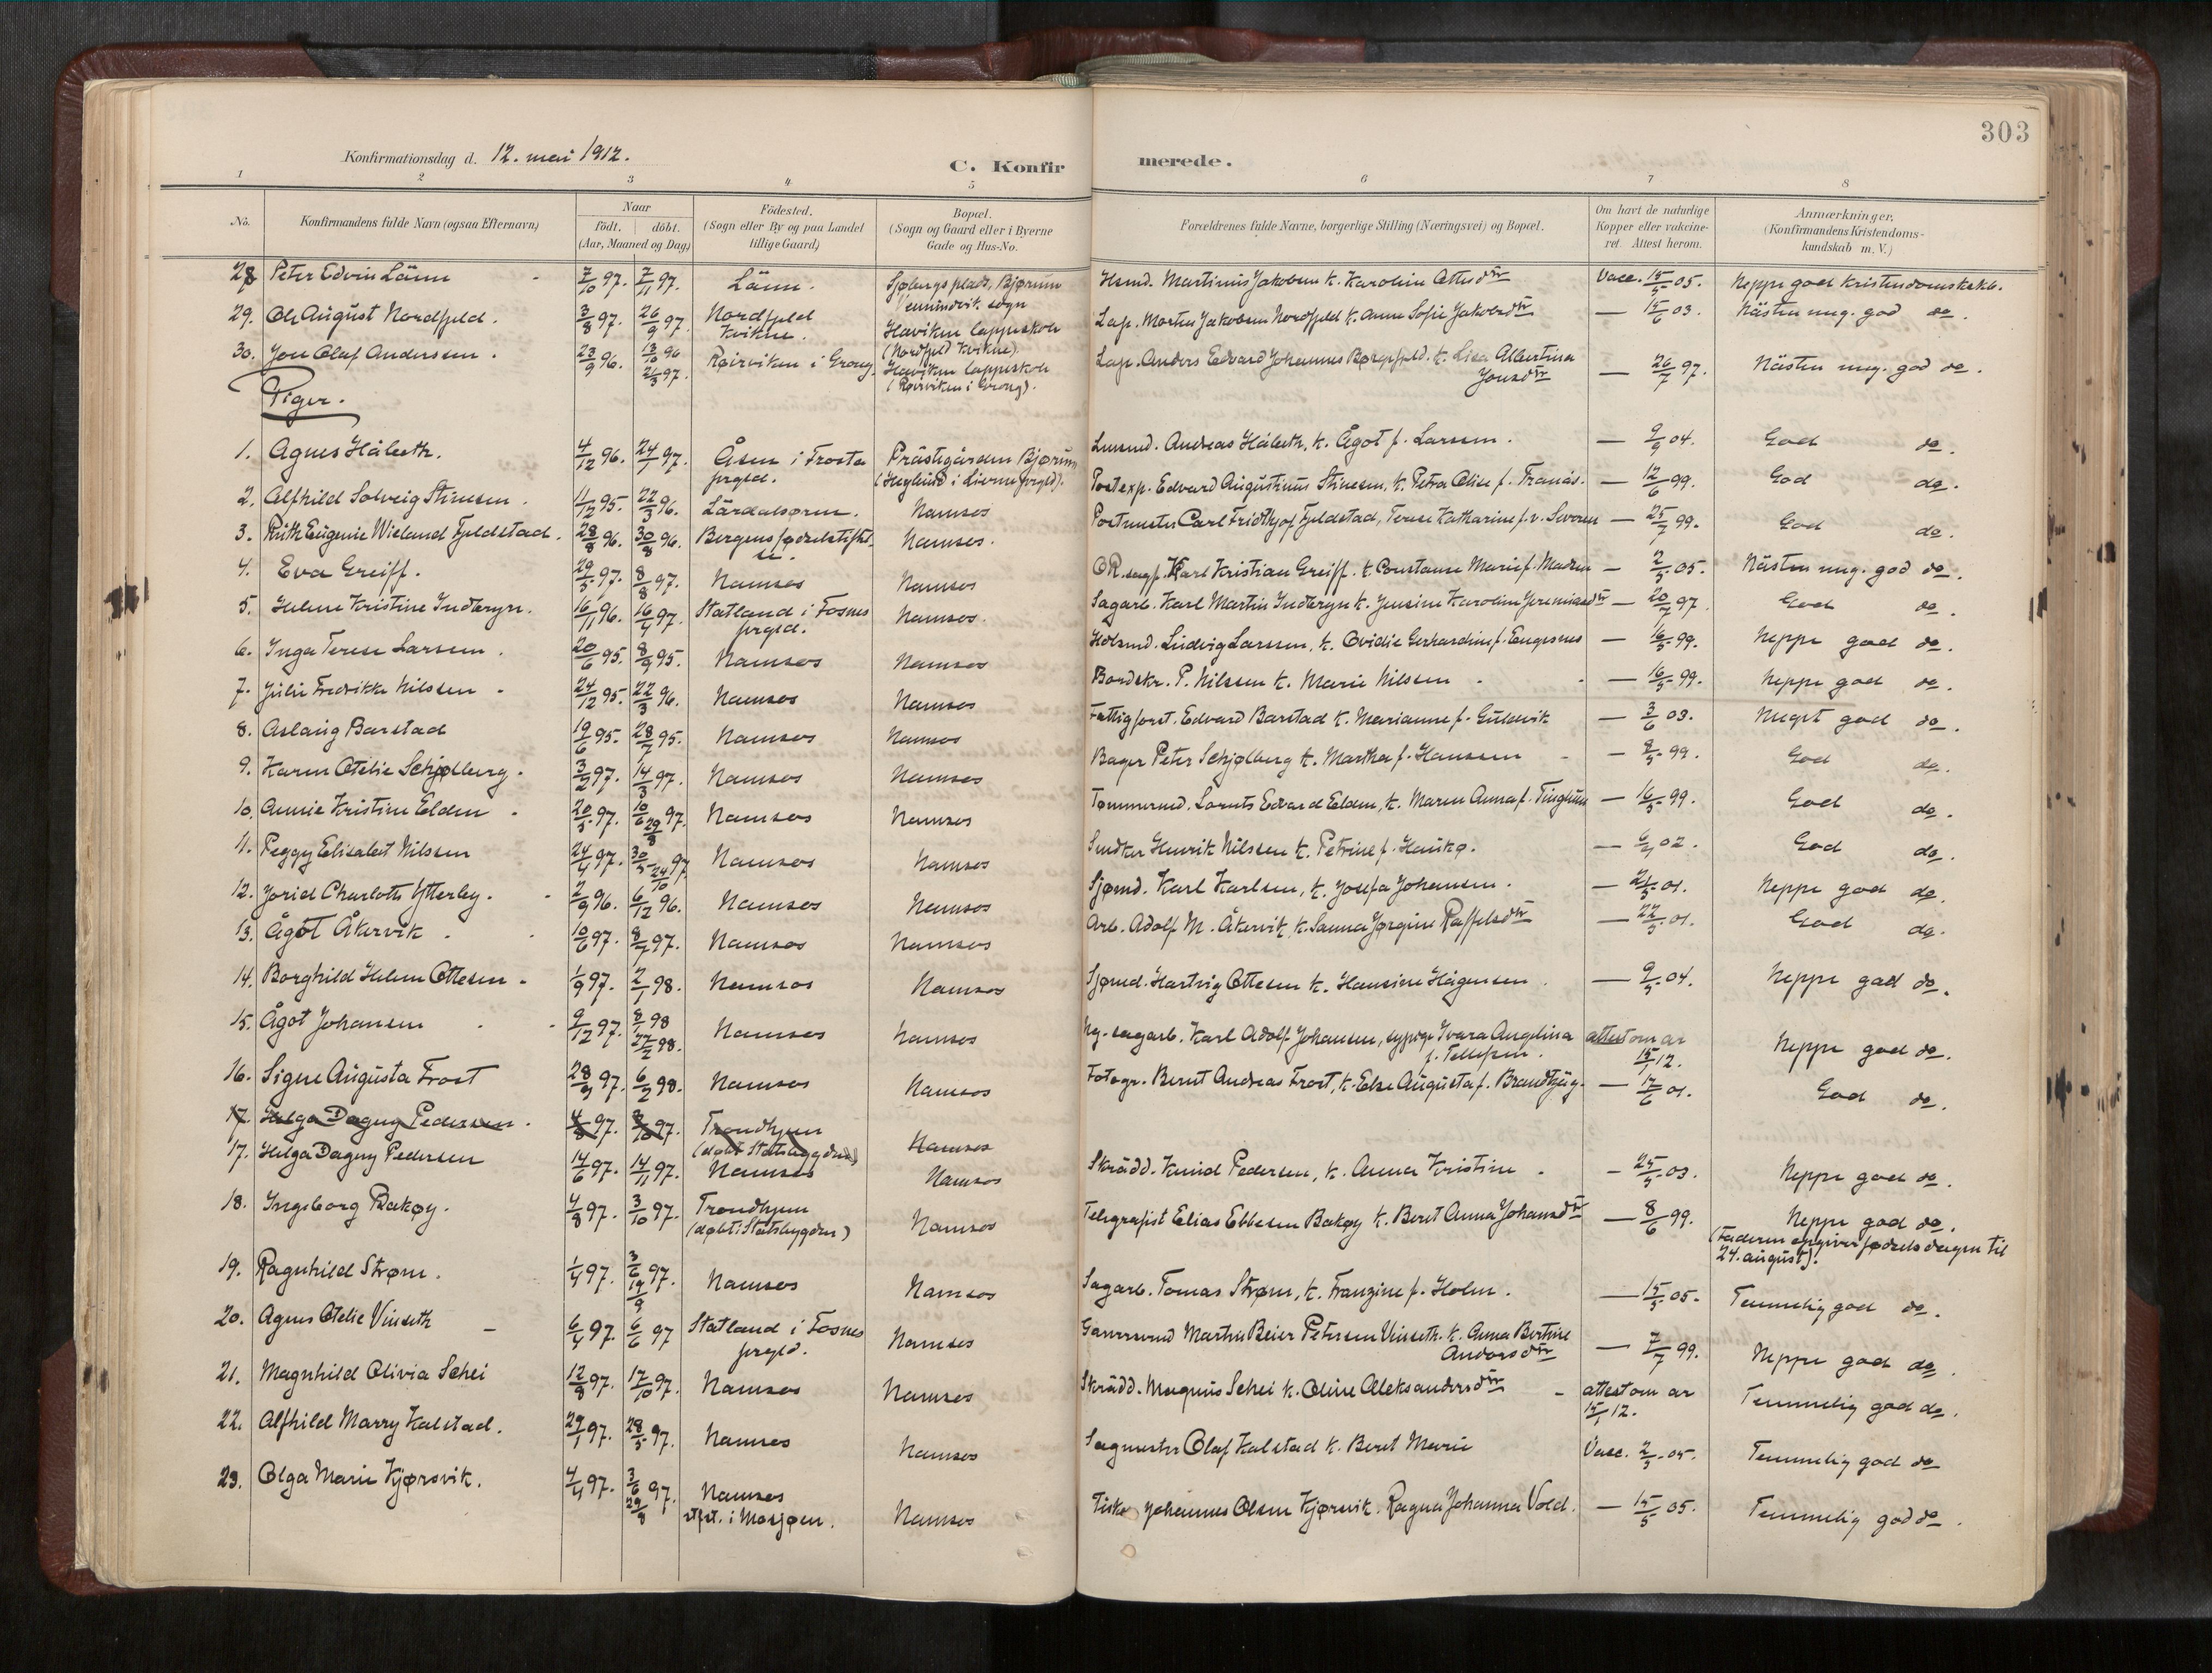 303
Konfirmationsdag d. 12. mai 1912.
C. Konfir merede.
1 2 3 4 5 6 7 8
No. Konfirmandens fulde Navn (ogsaa Efternavn) Naar født. døbt. (Aar, Maaned og Dag) Födested. (Sogn eller By og paa Landet tillige Gaard) Bopæl. (Sogn og Gaard eller i Byerne Gade og Hus-No. Forældrenes fulde Navne, borgerlige Stilling (Næringsvei) og Bopæl. Om havt de naturlige Kopper eller vakcineret. Attest herom. Anmærkninger, (Konfirmandens Kristendomskundskab m. V.)
28 Peter Edvin Länn 7/10 97. 7/11 97. Länn. Sjøbergs plads, Bjørum sogn Husmd. Martinus Jakobsen k. Karolin Ottesdtr Vacc. 15/5 05. Neppe god kristendomskskb.
29. Ole August Nordfjeld. 3/8 97. 26/9 97. Nordfjeld Kvikne. Haviken lappeskole (Nordfjeld Kvikne) Lap. Morten Jakobsen Nordfjeld k. Anna Sofie Jakobsdtr — 15/6 03. Nästen mg. god do.
30. Jon Olaf Anderssen. 23/9 96. 13/10 96 21/3 97. Røirviken i Grong. Haviken lappeskole (Røirviken i Grong). Lap. Anders Edvard Johannes Børgefjeld. k. Lisa Albertina Jonsdtr — 26/7 97. Nästen mg. god do.
Piger.
1. Agnes Hålseth. 4/12 96. 24/1 97. Åsen i Frosta prgld. Prästegården Bjørum (Heglund i Lierne prgld). Lensmd. Andreas Hålseth, k. Ågot f. Larssen. — 9/9 04. God do.
2. Alfhild Solveig Stinesen. 11/12 95. 22/3 96. Lärdalsøren. Namsos Postexp. Edvard Augustinus Stinesen, k. Petra Olise f. Tranås. — 12/6 99. God do.
3. Ruth Eugenie Wieland Fjeldstad. 28/8 96. 30/8 96. Bergens fødselsstiftelse. Namsos. Postmester Carl Fridthjof Fjeldstad, Terese Katharine f. v. Severen — 25/7 99. God do.
4. Eva Greiff. 29/5 97. 8/8 97. Namsos Namsos O.R.sagf. Karl Kristian Greiff. k. Constanse Marie f. Madsen — 2/5 05. Nästen mg. god do.
5. Helene Kristine Inderyn. 16/11 96. 16/4 97. Statland i Fosnes prgld. Namsos. Sagarb. Karl Martin Inderyn k. Jensine Karoline Jeremiasdtr — 20/7 97. God do.
6. Inga Terese Larssen. 20/6 95. 8/9 95. Namsos Namsos Ludvig Larssen, k. Ovidie Gerhardine f. Engesnes — 16/5 99. Neppe god do.
7. Julie Fredrikke Nilssen. 24/12 95. 22/3 96. Namsos Namsos Bordskr. P. Nilssen k. Marie Nilssen — 16/5 99. Neppe god do.
8. Aslaug Barstad 19/6 95. 28/7 95. Namsos Namsos Fattigforst. Edvard Barstad k. Marianne f. Gulsvik — 3/6 03. Meget god do.
9. Karen Otelie Schjølberg. 3/2 97. 14/3 97. Namsos Namsos Bager Peter Schjølberg k. Martha f. Hanssen — 8/5 99. God do.
10. Annie Kristine Elden 20/5 97. 10/6 97. 29/8 Namsos Namsos Tømmermd. Lornts Edvard Elden, k. Maren Anna f. — 16/5 99. God do.
11. Peggy Elisabet Nilssen 24/4 97. 30/5 97 24/10 Namsos Namsos Snedker Henrik Nilssen k. Petrine f. Haukø. — 6/9 02. God do.
12. Jorid Charlotte Ytterby. 2/9 96. 6/12 96. Namsos Namsos Sjømd. Karl Karlsen, k. Josefa Johansen. — 21/5 01. Neppe god do.
13. Ågot Åkervik. 10/6 97. 8/7 97. Namsos Namsos Arb. Adolf M. Åkervik, k. Sanna Jørgine Raffelsdtr — 22/5 01. God do.
14. Borghild Helene Ottesen. 1/9 97. 2/1 98. Namsos Namsos Sjømd. Hartvig Ottesen k. Hansine Hågensen. — 9/5 04. Neppe god do.
15. Ågot Johansen 9/12 97. 8/1 98 27/2 98. Namsos Namsos Karl Adolf Johansen, sypige Ivara Angelina f. Tellefsen. attest om ar 15/1 12. Neppe god do.
16. Signe Augusta Frost 28/9 97. 6/2 98. Namsos Namsos Fotogr. Bernt Andreas Frost, k. Else Augusta f. Brandtzæg. — 17/6 01. God do.
17. Helga Dagny Pedersen. 4/8 97. 3/10 97. Trondhjem (døbt Statsbygden) Namsos
17. Helga Dagny Pedersen 14/6 97. 14/11 97. Namsos Namsos Skrädd. Knud Pedersen, k. Anna Kristine. — 25/5 03. Neppe god do.
18. Ingeborg Bakøy. 4/8 97. 3/10 97. Trondhjem (døbt i Statsbygden) Namsos Telegrafist Elias Ebbesen Bakøy k. Beret Anna Johansdtr — 8/6 99. Neppe god do. (Faderen opgiver fødselsdagen til 24. august).
19. Ragnhild Strøm. 1/4 97. 3/6 97. 19/9 Namsos Namsos Sagarb. Tomas Strøm, k. Franzine f. Holm. — 15/5 05. Temmelig god do.
20. Agnes Otelie Vinseth 6/4 97. 6/6 97 Statland i Fosnes prgld. Namsos Martin Beier Petersen Vinseth. k. Anna Bertine Andorsdtr — 7/7 99. Neppe god do.
21. Magnhild Olivia Schei 12/8 97. 17/10 97. Namsos Namsos Skrädd. Magnus Schei k. Oline Aleksandersdtr attest om ar 15/1 12. Temmelig god do.
22. Alfhild Marry Kalstad. 29/1 97. 28/5 97. Namsos Namsos Sagmester Olaf Kalstad k. Beret Marie Vacc. 2/5 05. Temmelig god do
23. Olga Marie Kjørsvik. 4/4 97. 3/6 97. 29/8 Namsos stfst. i Mosjøen. Namsos Johannes Olsen Kjørsvik. Ragna Johanna Vold. — 15/5 05. Temmelig god do.